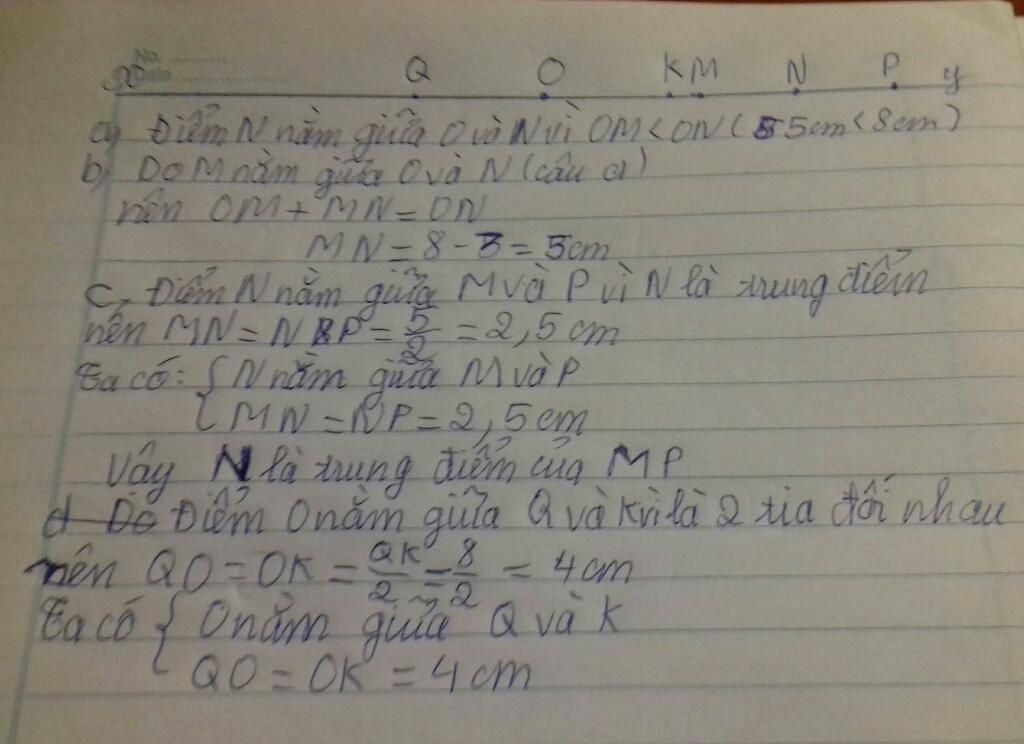 No. ..........
Date ....................
x Q O K M N P y
a, Điểm N nằm giữa O và N vì OM < ON ( 5cm < 8cm )
b, Do M nằm giữa O và N (câu a)
nên OM + MN = ON
MN = 8 - 3 = 5cm
c, Điểm N nằm giữa M và P vì N là trung điểm
nên MN = NP = 5/2 = 2,5 cm
Ta có: { N nằm giữa M và P
MN = NP = 2,5 cm
Vây N là trung điểm của MP
d Do Điểm O nằm giữa Q và K vì là 2 tia đối nhau
nên QO = OK = QK/2 = 8/2 = 4 cm
Ta có { O nằm giữa Q và K
QO = OK = 4 cm